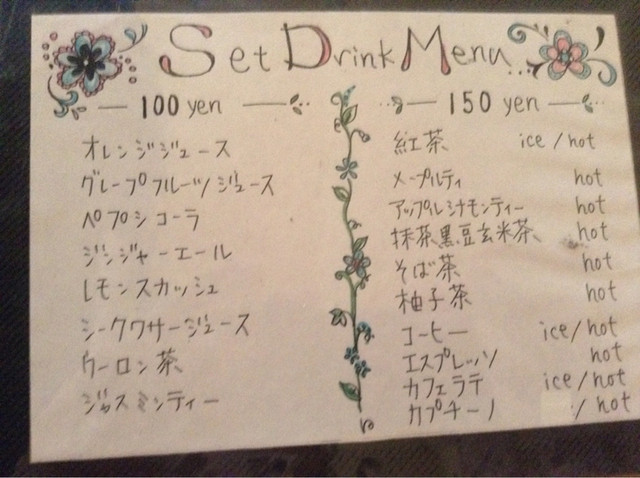 Set Drink Menu...
100 yen
オレンジジュース
グレープフルーツジュース
ペプシコーラ
ジンジャーエール
レモンスカッシュ
シークワサージュース
ウーロン茶
ジャスミンティー
150 yen
紅茶 ice / hot
メープルティ hot
アップルシナモンティー hot
抹茶黒豆玄米茶 hot
そば茶 hot
柚子茶 hot
コーヒー ice/hot
エスプレッソ hot
カフェラテ ice/hot
カプチーノ / hot